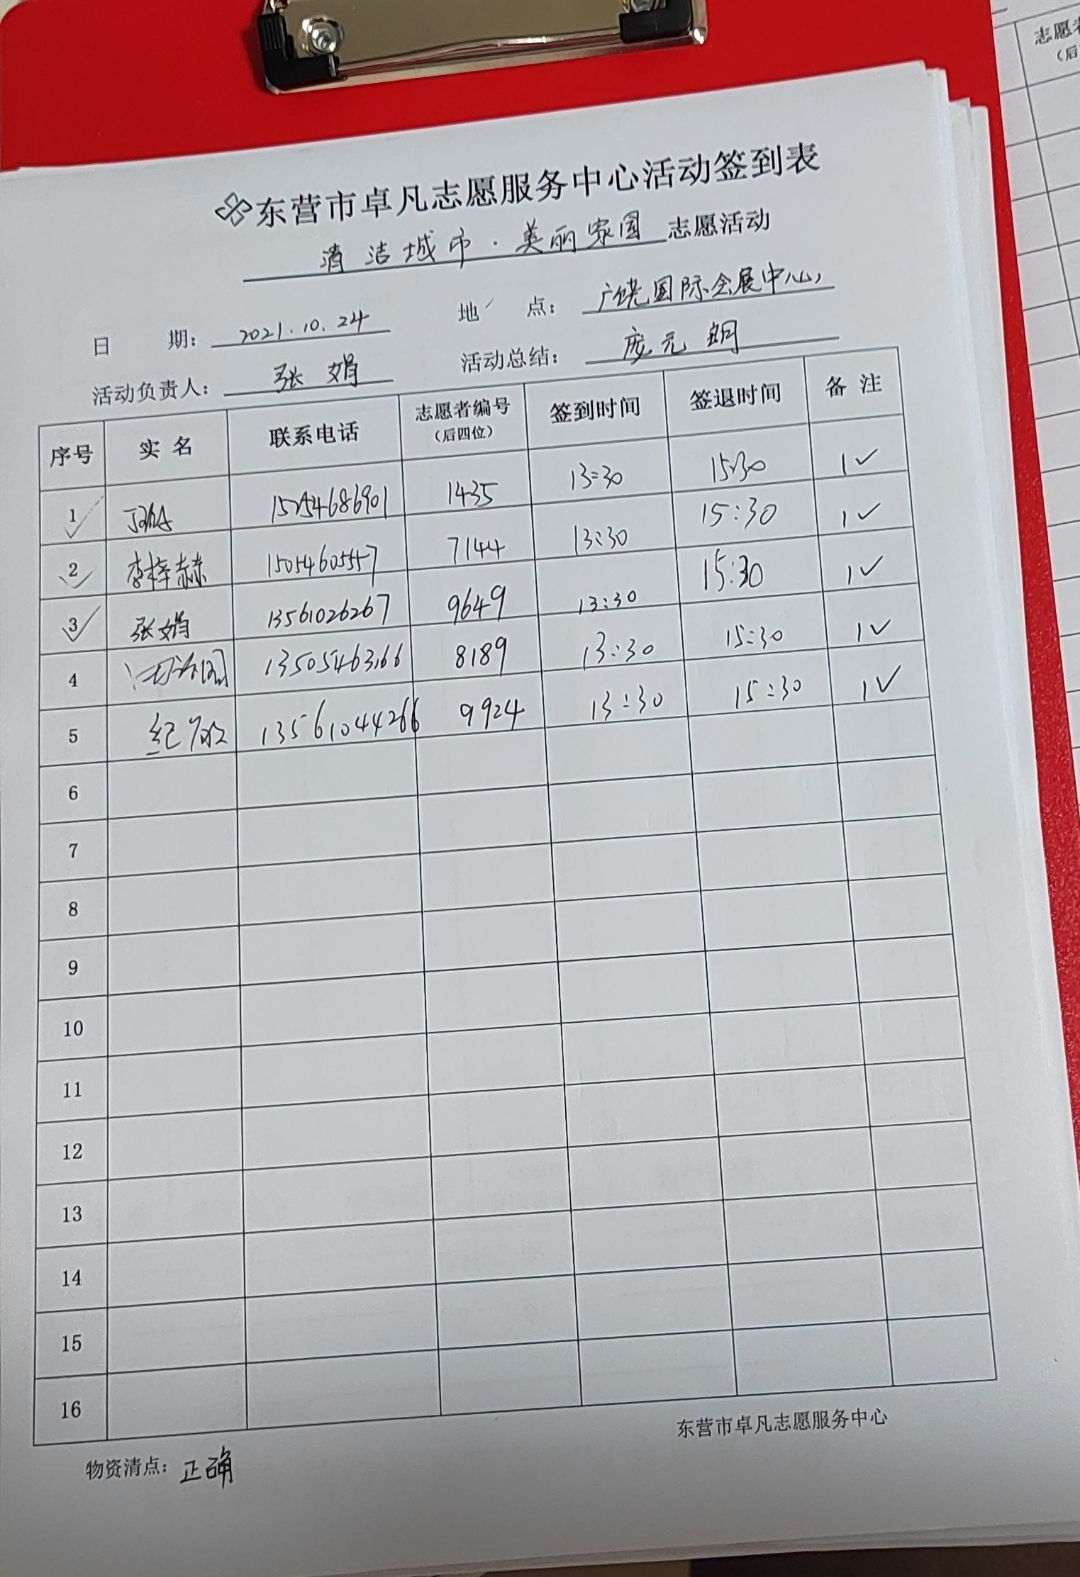 东营市卓凡志愿服务中心活动签到表
清洁城市·美丽家园 志愿活动
日 期: 2021.10.24 地 点: 广饶国际会展中心
活动负责人: 张娟 活动总结: 庞元钥
序号 实名 联系电话 志愿者编号(后四位) 签到时间 签退时间 备注
1 15254686901 1435 13:30 15:30 1✓
2 李梓赫 15054605547 7144 13:30 15:30 1✓
3 张娟 13561026267 9649 13:30 15:30 1✓
4 13505463166 8189 13:30 15:30 1✓
5 纪 13561044266 9924 13:30 15:30 1✓
6
7
8
9
10
11
12
13
14
15
16
东营市卓凡志愿服务中心
物资清点: 正确
志愿者
(后